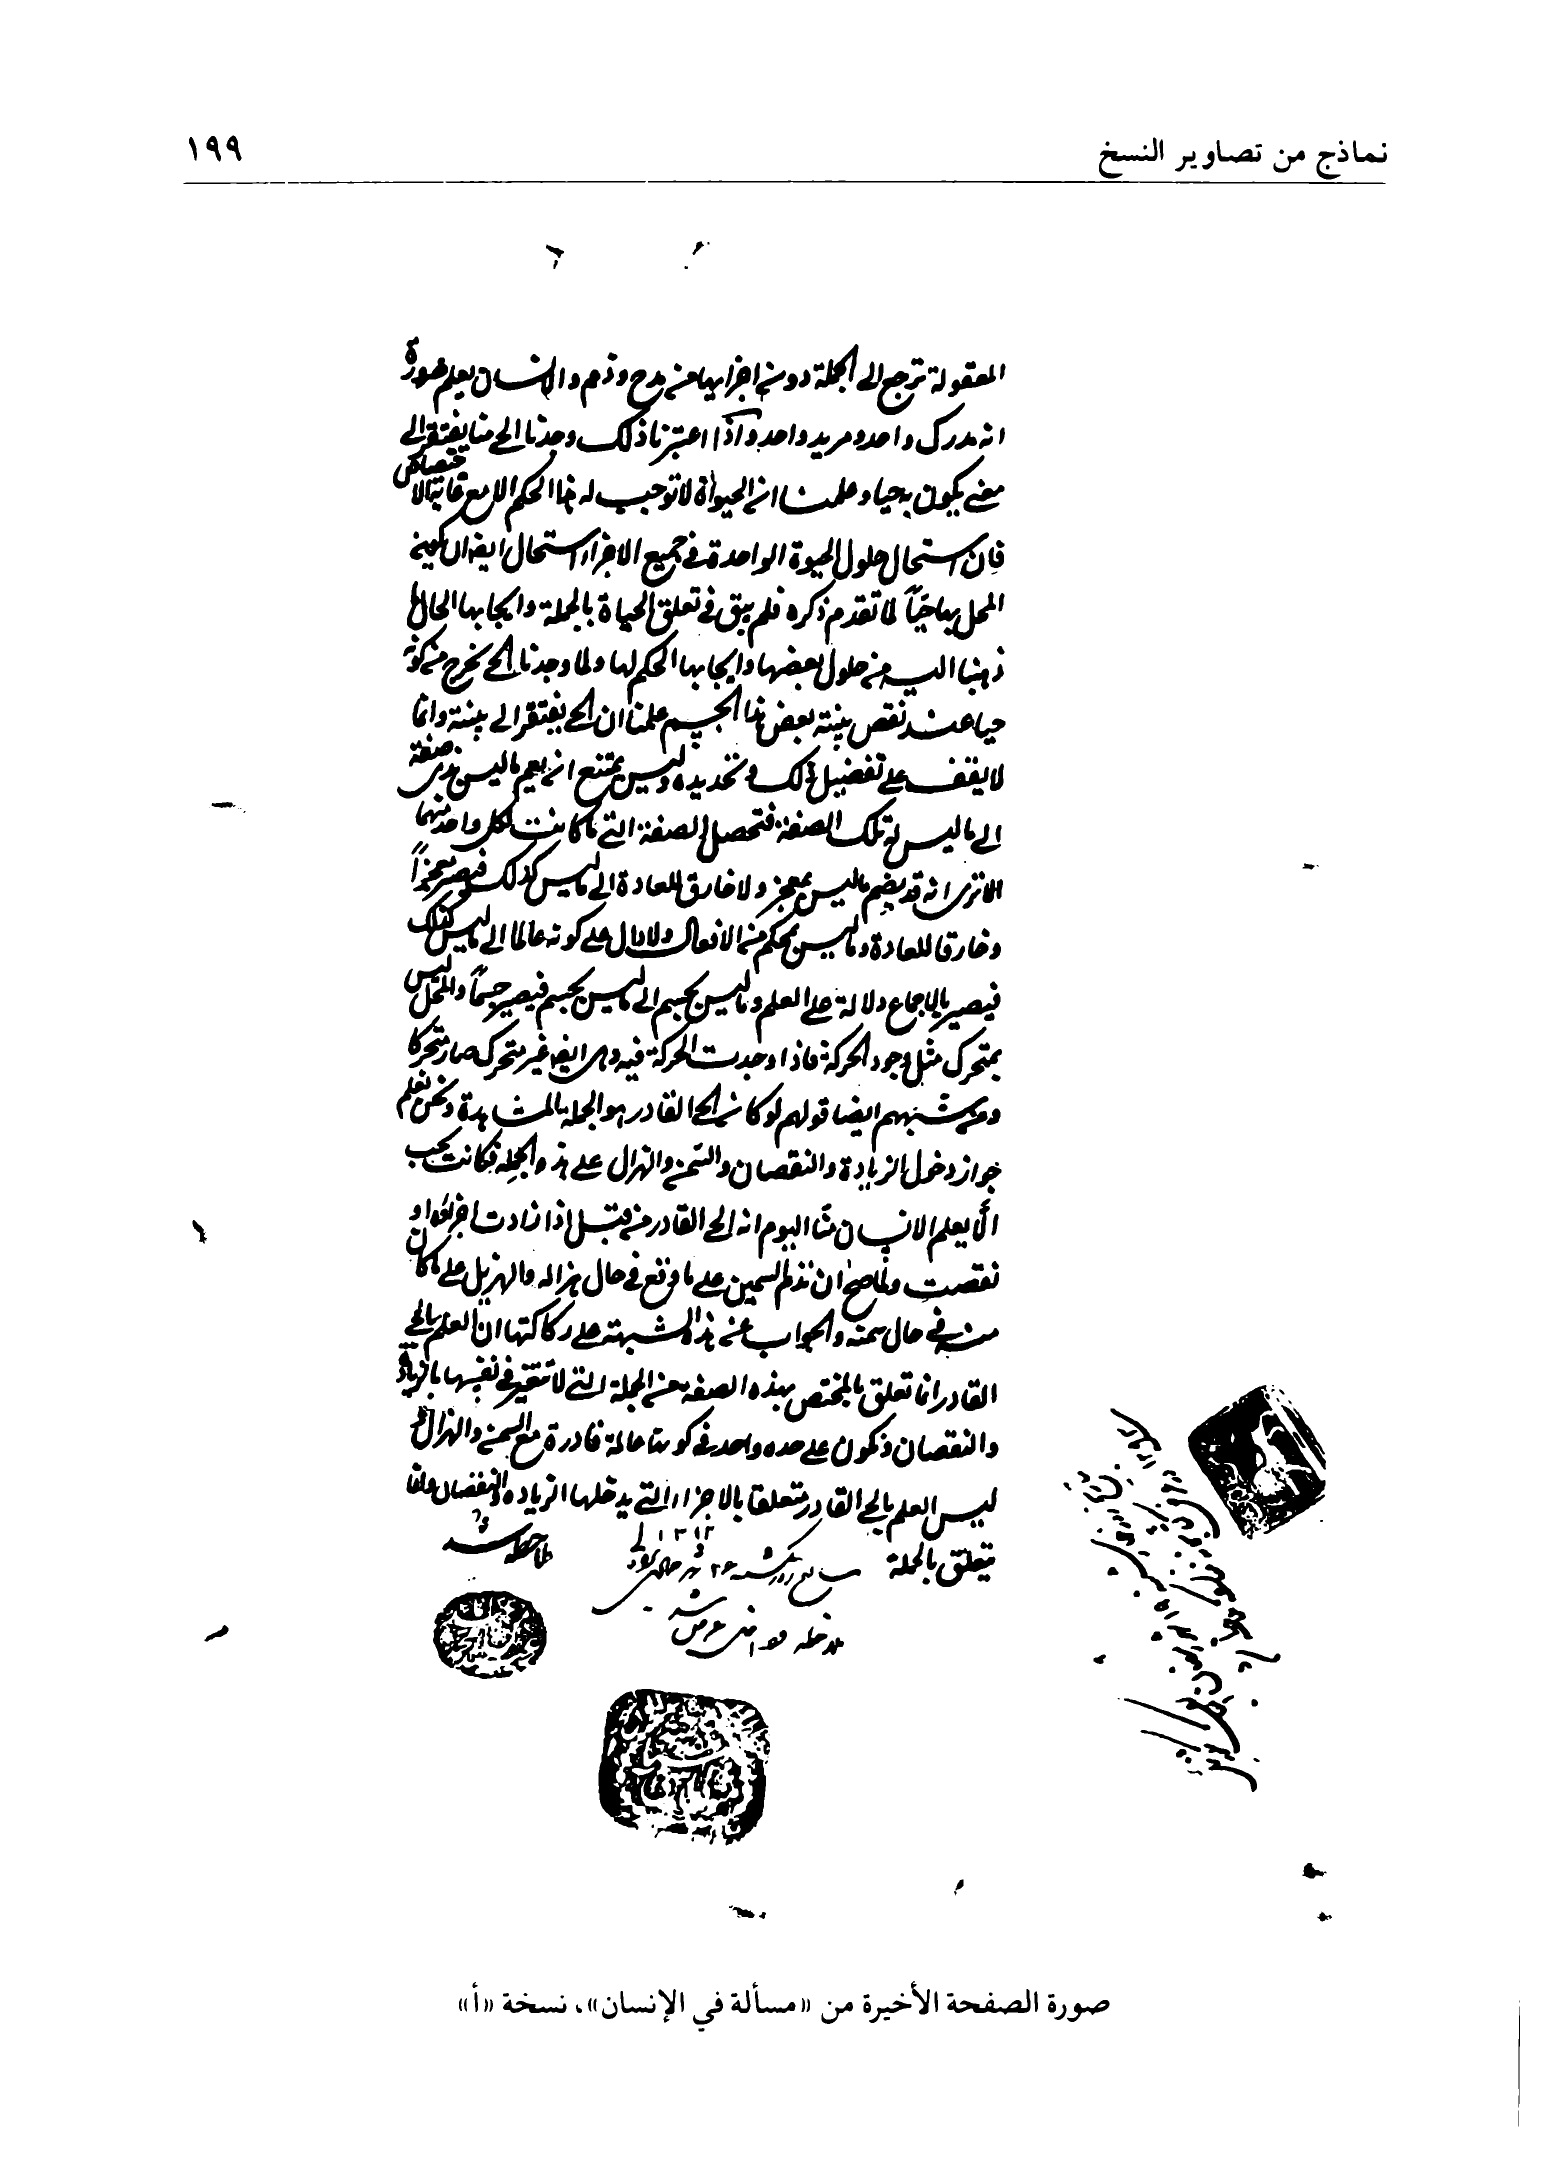 نماذج من تصاوير النسخ
١٩٩
المعقولة ترجع الى الجملة دون اجزايها من مدح وذم والانسان يعلم ضرورة
انه مدرك واحد ومريد واحد واذا اعتبرنا ذلك وجدنا الحى منا يفتقر الى
معنى يكون به حيا وعلمنا ان الحيوة لا توجب له هذا الحكم الا مع غاية الاختصاص
فان استحال حلول الحيوة الواحدة في جميع الاجزاء استحال ايضا ان يكون
المحل بها حيّاً لما تقدم ذكره فلم يبق في تعلق الحياة بالجملة وايجابها الحال
ذهبنا اليه من حلول بعضها وايجابها الحكم لها ولما وجدنا الحى يخرج من كونه
حيا عند نقص بنية بعض هذا الجسم علمنا ان الحى يفتقر الى بنية وانما
لا يقف على تفصيل ذلك وتحديده وليس يمتنع ان يضم ما ليس بذى صفة
الى ما ليس له تلك الصفة فتحصل الصفة التى ما كانت لكل واحد منهما
الا ترى انه قد يضم ما ليس بمعجز ولا خارق للعادة الى ما ليس كذلك فيصير معجزاً
وخارقا للعادة وما ليس بمحكم من الافعال ولا دال على كونه عالما الى ما ليس كذلك
فيصير بالاجماع دلالة على العلم وما ليس بجسم الى ما ليس بجسم فيصير جسماً والمحل ليس
بمتحرك مثل وجود الحركة فاذا وجدت الحركة فيه وهى ايضا غير متحرك صار متحركا
ومن شبههم ايضا قولهم لو كان الحى القادر هو الجملة المشاهدة ونحن نعلم
جواز دخول الزيادة والنقصان والسّمن والهزال على هذه الجملة فكانت يجب
ألّا يعلم الانسان منّا اليوم انه الحى القادر من قبل اذا زادت اجزاؤه او
نقصت ولما صح ان نذم السمين على ما وقع في حال هزاله والهزيل على ما كان
منه في حال سمنه والجواب عن هذه الشبهة على ركاكتها ان العلم بالحى
القادر انما تعلق بالمختص بهذه الصفة من الجملة التى لا تتغير في نفسها بالزيادة
والنقصان وتكون على حده واحد في كونها عالمة قادرة مع السمن والهزال و
ليس العلم بالحى القادر متعلقا بالاجزاء التى يدخلها الزيادة والنقصان وانما
يتعلق بالجملة
ملاحظه شد
١٣١٢
صورة الصفحة الأخيرة من «مسألة في الإنسان»، نسخة «أ»